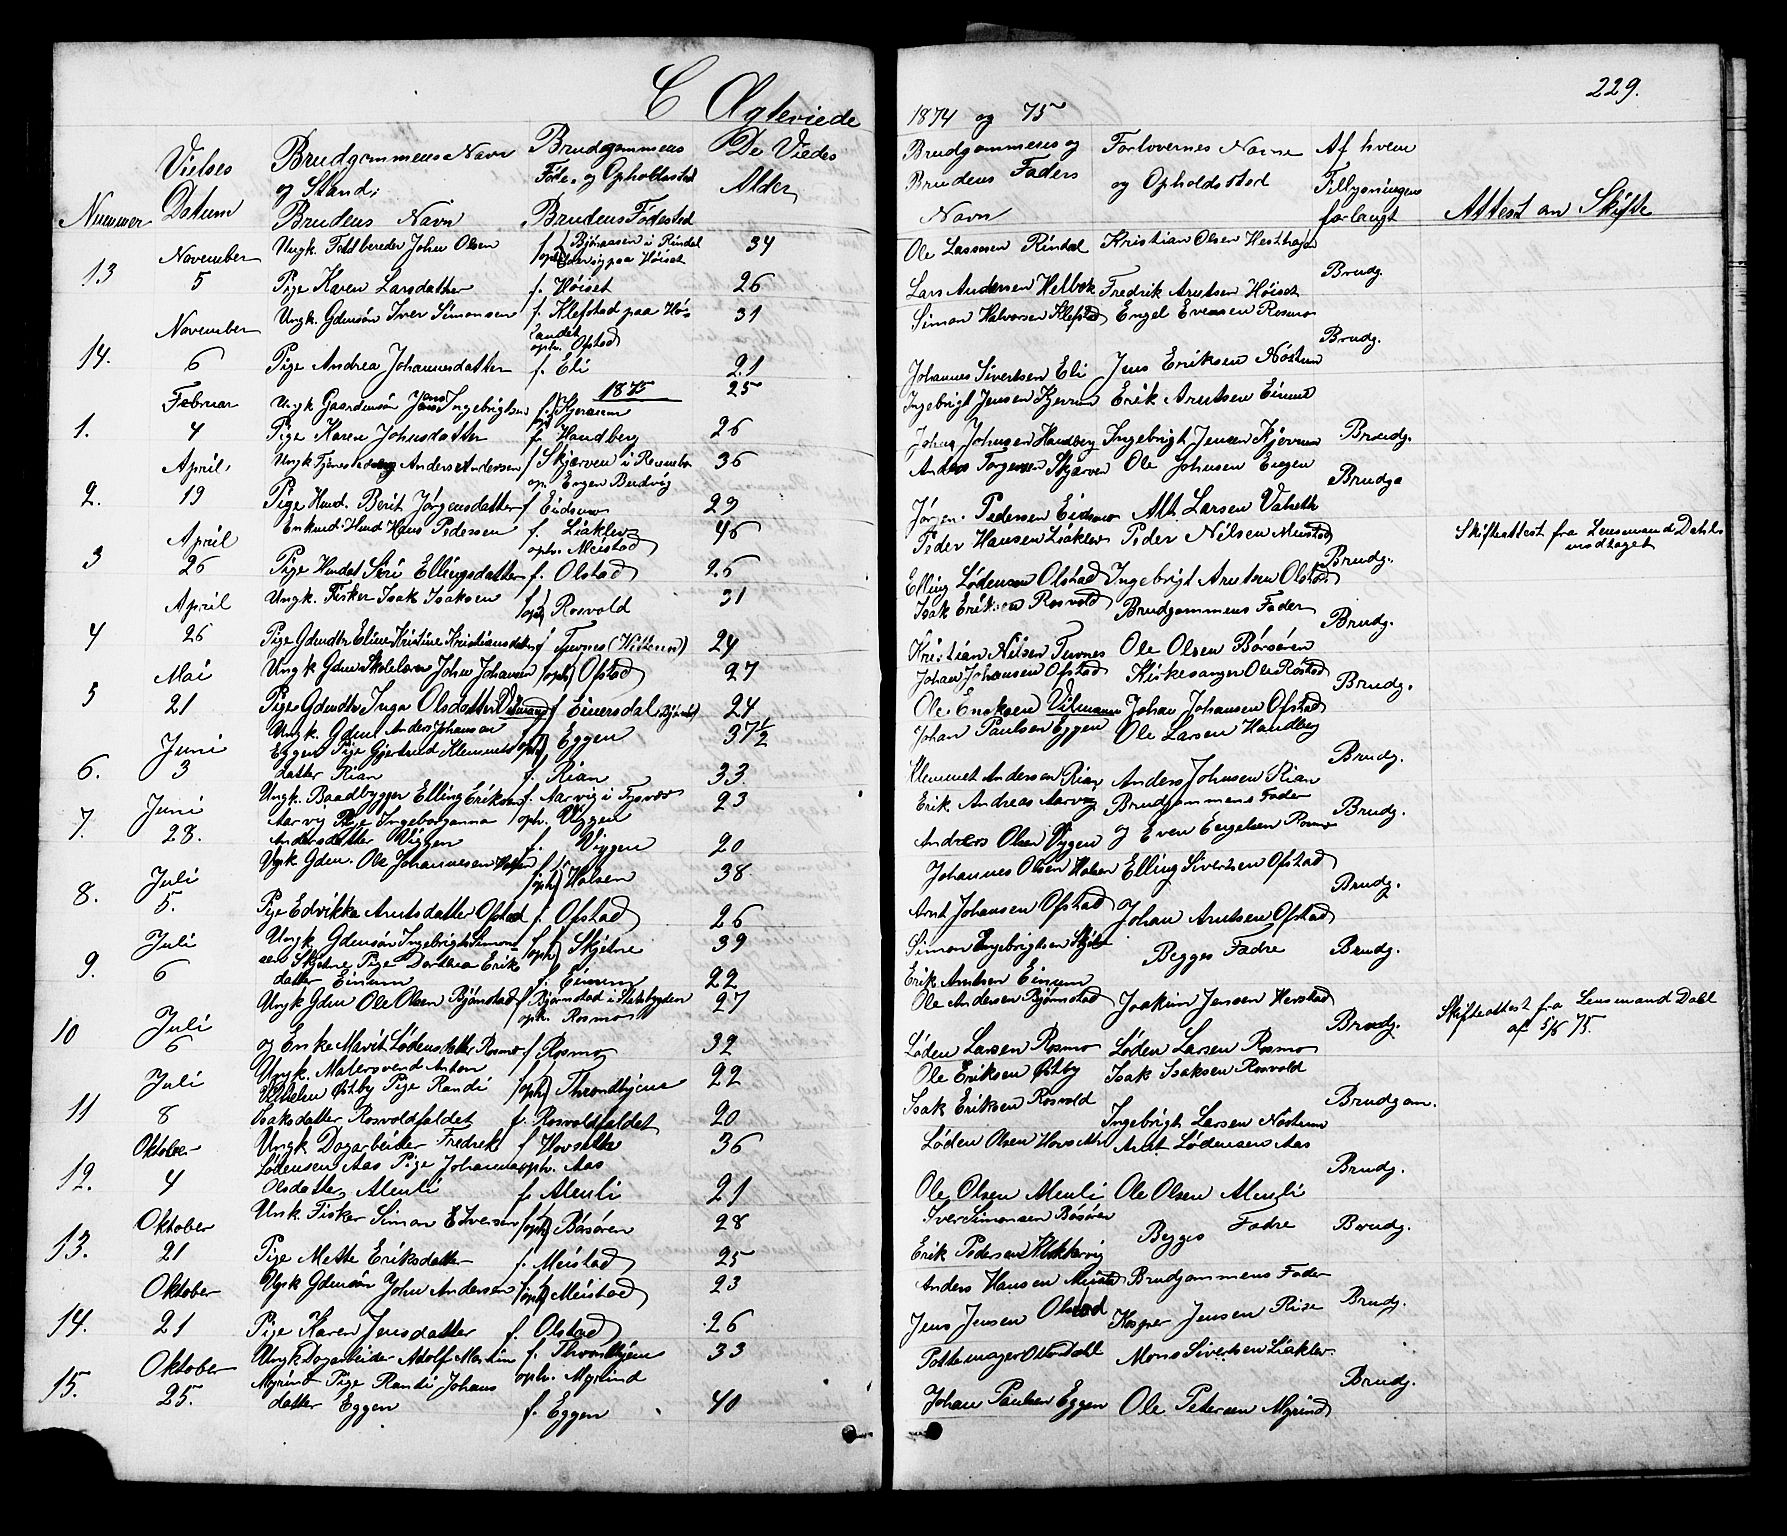 229.
C Ægteviede 1874 og 75
Nummer
Vielses Datum
Brudgommens Navn og Stand;
Brudens Navn
Brudgommens Føde- og Opholdssted
Brudens Fødested
De Viedes Alder
Brudgommens og Brudens Faders Navn
Forlovernes Navne og Opholdssted
Af hvem Tillysningen forlangt
Attest om Skifte
13 November 5
Ungk. John Olsen f. i Rindal 34 Ole Larsen Rindal Kristian Olsen
oph. paa Høiset
Pige Karen Larsdatter f. Høiset 26 Lars Andersen Fredrik Arntsen Høiset Brudg.
14. November 6
Ungk. Gdmsøn Iver Simonsen f. Klefstad paa Hø- 31 Simon Halvorsen Klefstad Engel Evensen Rosmo
landet
oph. Ofstad Brudg.
Pige Andrea Johannesdatter f. Eli 21 Johannes Sivertsen Eli Jens Eriksen Nøstum
1875
1. Februar 4
Ungk Gaardmsøn Jens Ingebrigtsen f. Kjerum 25 Ingebrigt Jensen Kjerum Erik Arntsen Einum
Pige Karen Johnsdatter f. Handberg 26 Johnsen Handberg Ingebrigt Jensen Kjerum Brudg.
2. April, 19
Ungk Anders Andersen f Skjærven i 36 Anders Skjærven Ole Johnsen Engen Brudga
op. Engen Budvig
Pige Hmd. Berit Jørgensdatter f Eidsmo 29 Jørgen Pedersen Eidsmo Mt. Larsen
3 April 26
Enkmd. Hmd Hans Pedersen f. Liaklev 46 Peder Hansen Liaklev Peder Nilsen Meistad Skifteattest fra Lensmand Dahl
oph. Meistad modtaget
Pige Hmdat Siri Ellingsdatter f. Olstad 26 Elling Lødensen Olstad Ingebrigt Arntsen Olstad Brudg.
4 April 26
Ungk. Fisker Isak Isaksen f oph. Rosvold 31 Isak Eriksen Rosvold Brudgommens Fader Brudg.
Pige Gdmdtr Eline Kristine Kristiansdatter f 24 Kristian Nilsen Ole Olsen Børsøren
5 Mai 21
Ungk Gdm Skolelærer John Johansen f oph Ofstad 27 Johan Johansen Ofstad Kirkesanger Ole Røstad Brudg.
Pige Gdmdtr Inga Olsdatter f Einersdal 24 Ole Eriksen Vilmann Johan Johansen Ofstad
6. Juni 3
Ungk Gdm Anders Johansen 37½ Johan Paulsen Eggen Ole Larsen Handberg
Eggen Pige Gjertrud Klemmets oph Eggen
datter Rian f. Rian 33 Klemmet Andersen Rian Anders Johnsen Rian Brudg.
7. Juni 28.
Ungk. Baadbygger Elling Eriksen f. Aarvig i 23 Erik Andreas Aarvig Brudgommens Fader
Aarvig Pige Ingeborganna oph. Viggen Brudg.
Andersdatter Viggen f. Viggen 20 Anders Olsen Viggen og Even Engelsen Rosmo
8. Juli 5.
Ungk Gdm. Ole Johannesen Halsen f oph Halsen 38 Johannes Olsen Halsen Elling Sivertsen Ofstad Brudg.
Pige Edvikka Arntsdatter Ofstad f. Ofstad 26 Arnt Johansen Ofstad Johan Arntsen Ofstad
9. Juli 6
Ungk Gdmsøn Ingebrigt Simon- f oph Skjetne 39 Simon Ingebrigtsen Begges Fadre Brudg.
sen Skjetne Pige Dorthea Eriks
datter Einum f. Einum 22 Erik Arntsen Einum
10 Juli 6
Ungk Gdm Ole Olsen Bjørnstad f. Bjørnstad i 27 Ole Andersen Bjørnstad Joakim Jensen Skifteattest fra Lensmand Dahl
oph. Rosmo Brudg. af 5/6 75.
og Enke Marit Lødensdatter Rosmo f Rosmo 32 Løden Larsen Rosmo Løden Larsen Rosmo
11 Juli 8
Ungk. Malersvend Anton 22 Ole Eriksen Østby Isak Isaksen Rosvold
Vilhelm Østby Pige Randi f oph Throndhjem
Isaksdatter Rosvoldfaldet f. Rosvoldfaldet 20 Isak Eriksen Rosvold Ingebrigt Larsen Nøstum Brudgom.
12. Oktober 4
Ungk Dagarbeider Fredrek f Hovsette 36 Løden Olsen Arnt Lødensen Aas
Lødensen Aas Pige Johanna oph. Aas Brudg.
Olsdatter Alenli f. Alenli 21 Ole Olsen Alenli Ole Olsen Alenli
13. Oktober 21
Unk. Fisker Simon Iversen f oph Børsøren 28 Iver Simonsen Børsøren Begges Fadre Brudg.
Pige Mette Eriksdatter f. Meistad 25 Erik Pedersen
14. Oktober 21
Ungk Gdmsøn John Andersen f oph Meistad 23 Anders Hansen Meistad Brudgommens Fader
Pige Karen Jensdatter f. Olstad 26 Jens Jensen Olstad Kasper Jensen Brudg.
15. Oktober 25.
Ungk Dagarbeider Adolf Martin f. Throndhjem 33 Pottemager Otto Dahl Mons Sivertsen Liaklev
Myrind Pige Randi Johans oph. Myrind Brudg.
datter Eggen f. Eggen 40 Johan Paulsen Eggen Ole Petersen Myrind